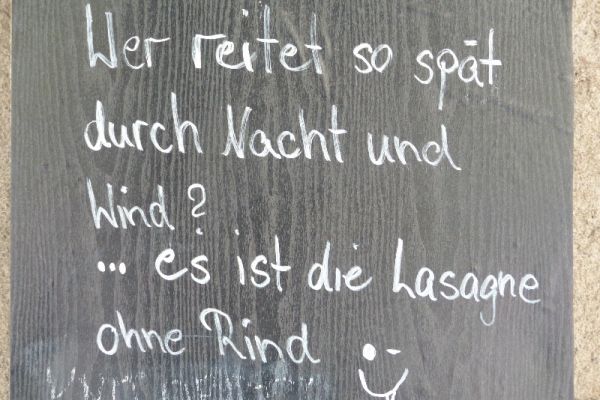 Wer reitet so spät
durch Nacht und
Wind?
... es ist die Lasagne
ohne Rind